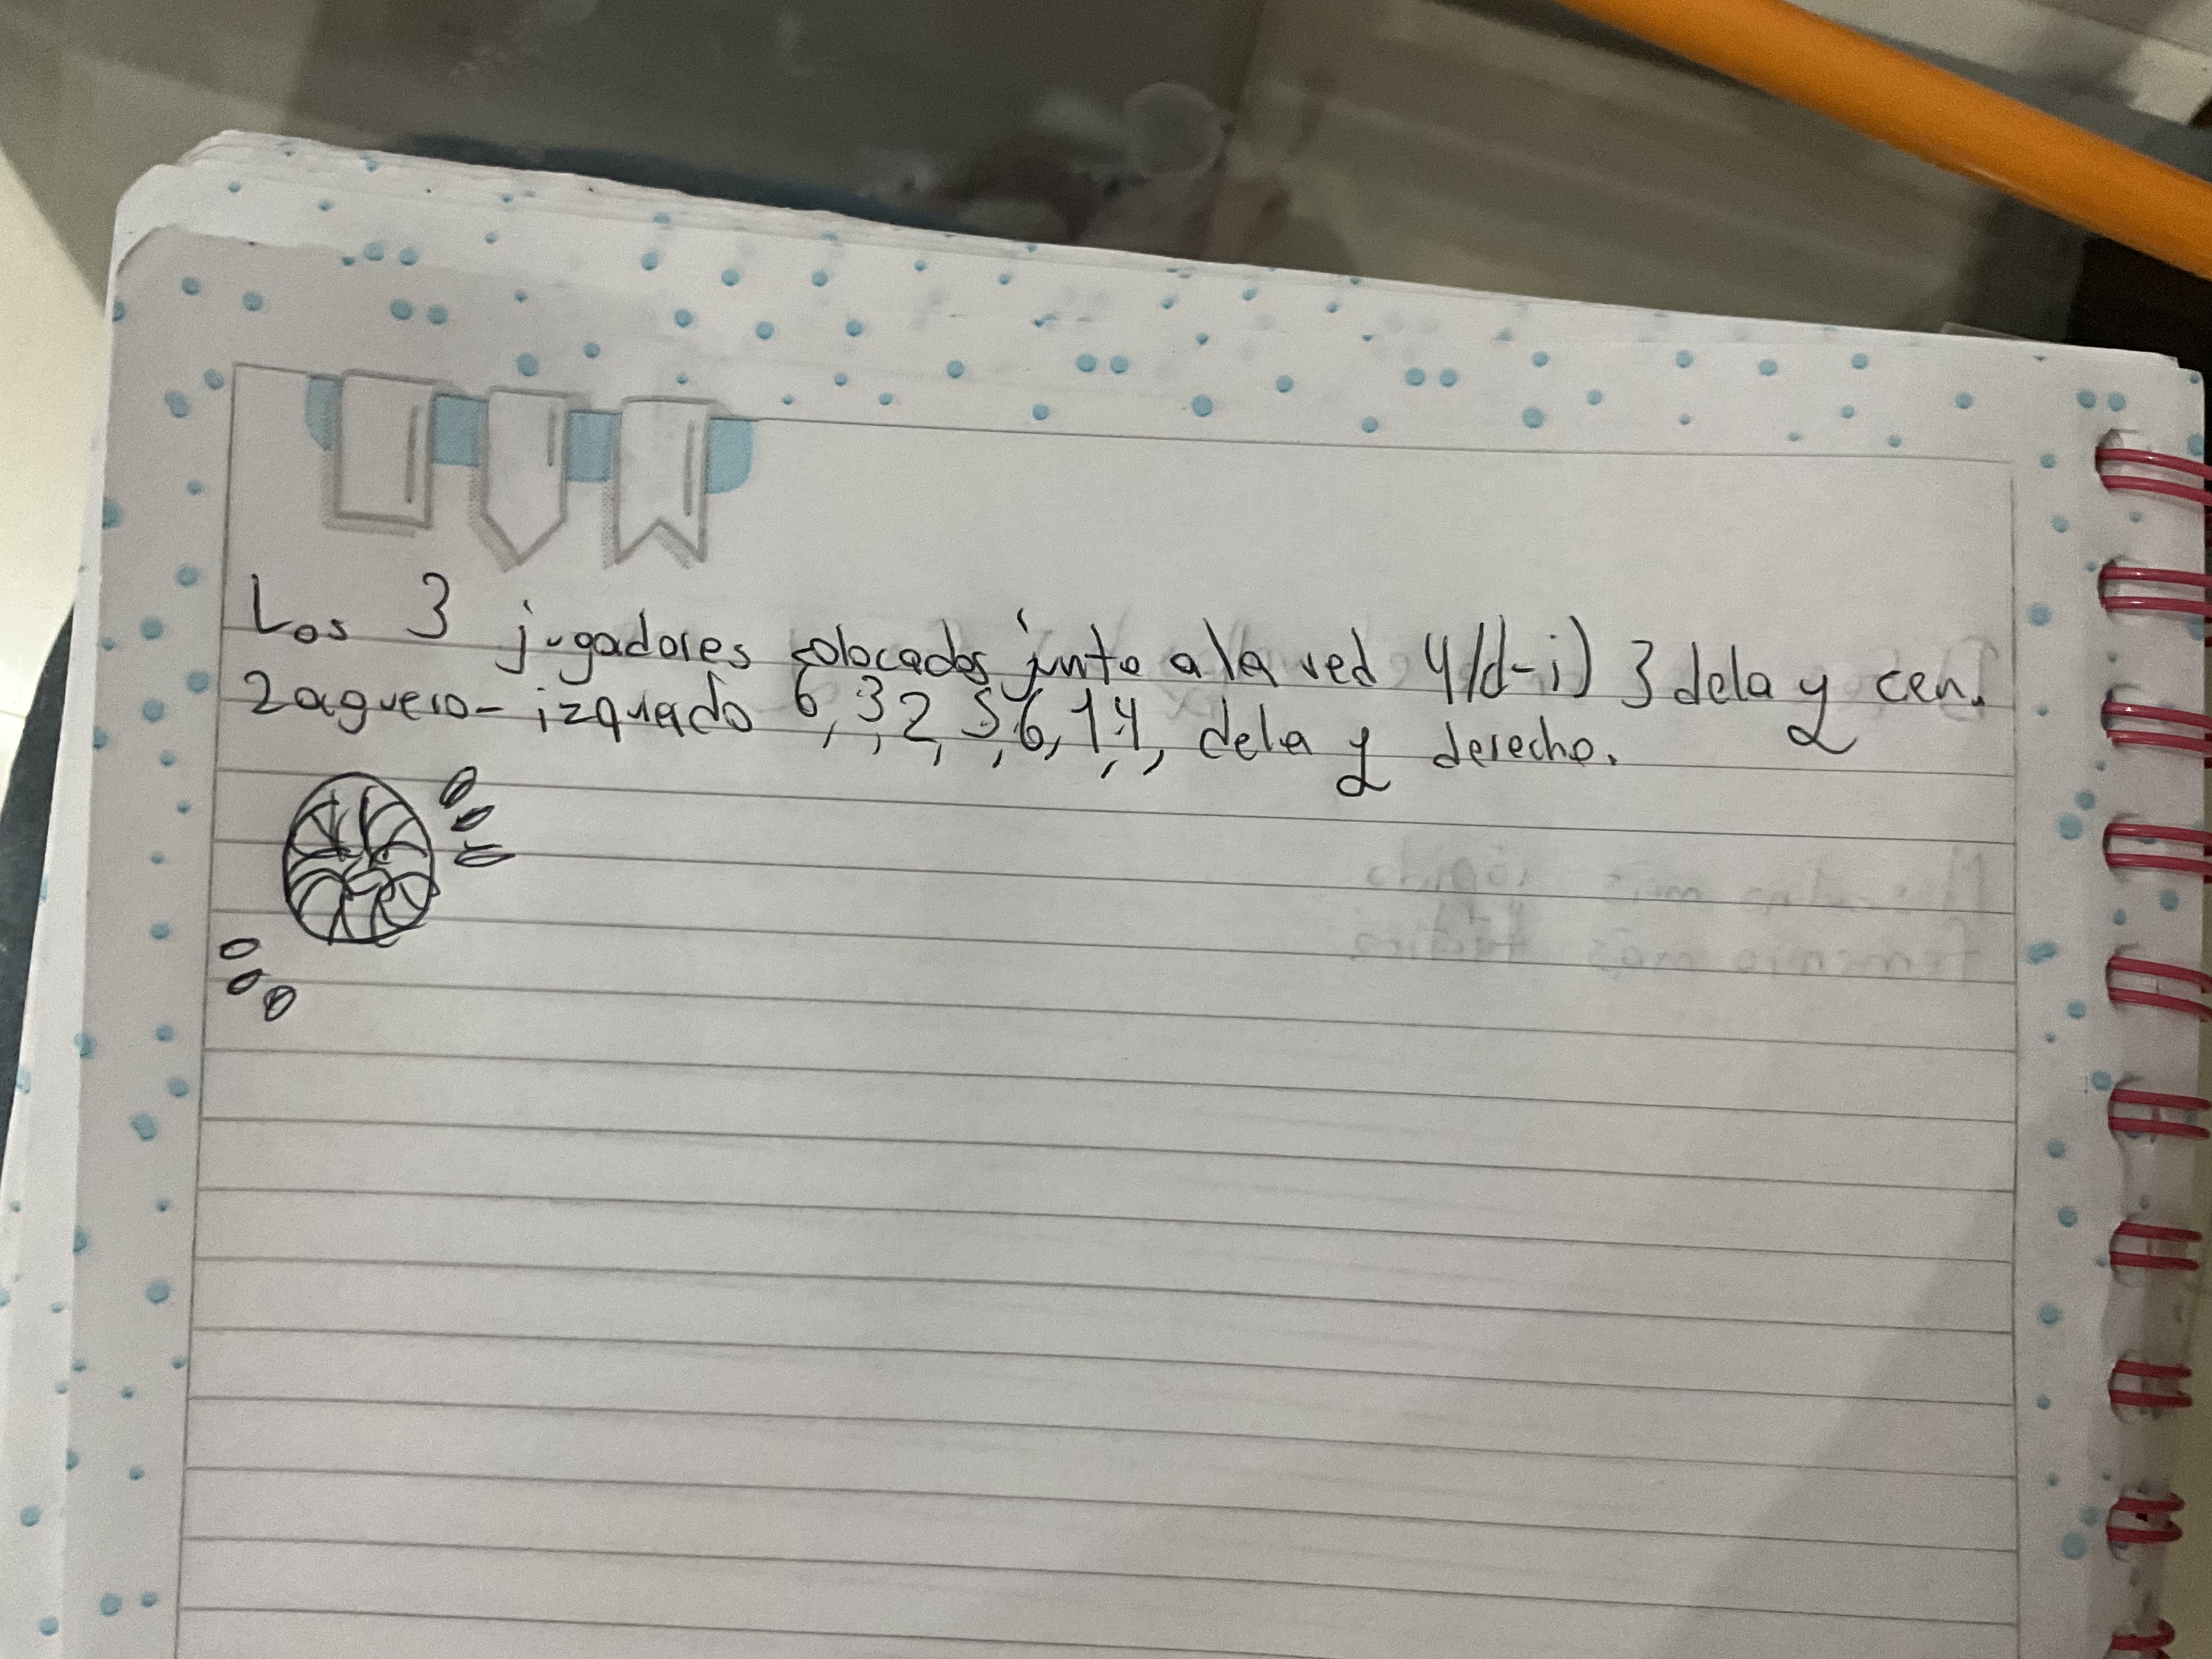 Los 3 jugadores colocados junto a la red 4/d-i) 3 dela y cen.
zaguero-izquiedo 6, 3, 2, 5, 6, 1, 4, dela y derecho.